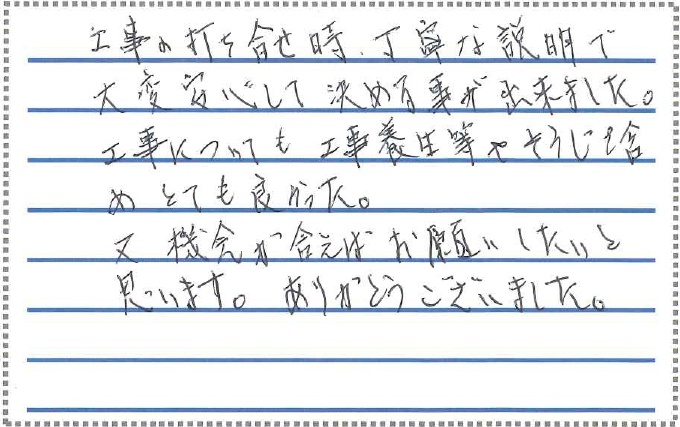 工事の打ち合せ時、丁寧な説明で
大変安心して決める事が出来ました。
工事についても工事養生等やそうじも含
めとても良かった。
又機会が合えばお願いしたいと
思います。ありがとうございました。